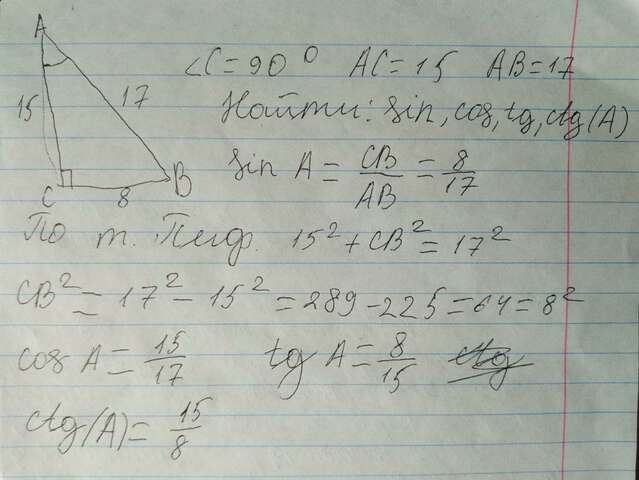 A
15
17
C
8
B
∠C = 90° AC = 15 AB = 17
Найти: sin, cos, tg, ctg(A)
sin A = CB/AB = 8/17
По т. Пиф. 15² + CB² = 17²
CB² = 17² - 15² = 289 - 225 = 64 = 8²
cos A = 15/17 tg A = 8/15 ctg
ctg(A) = 15/8